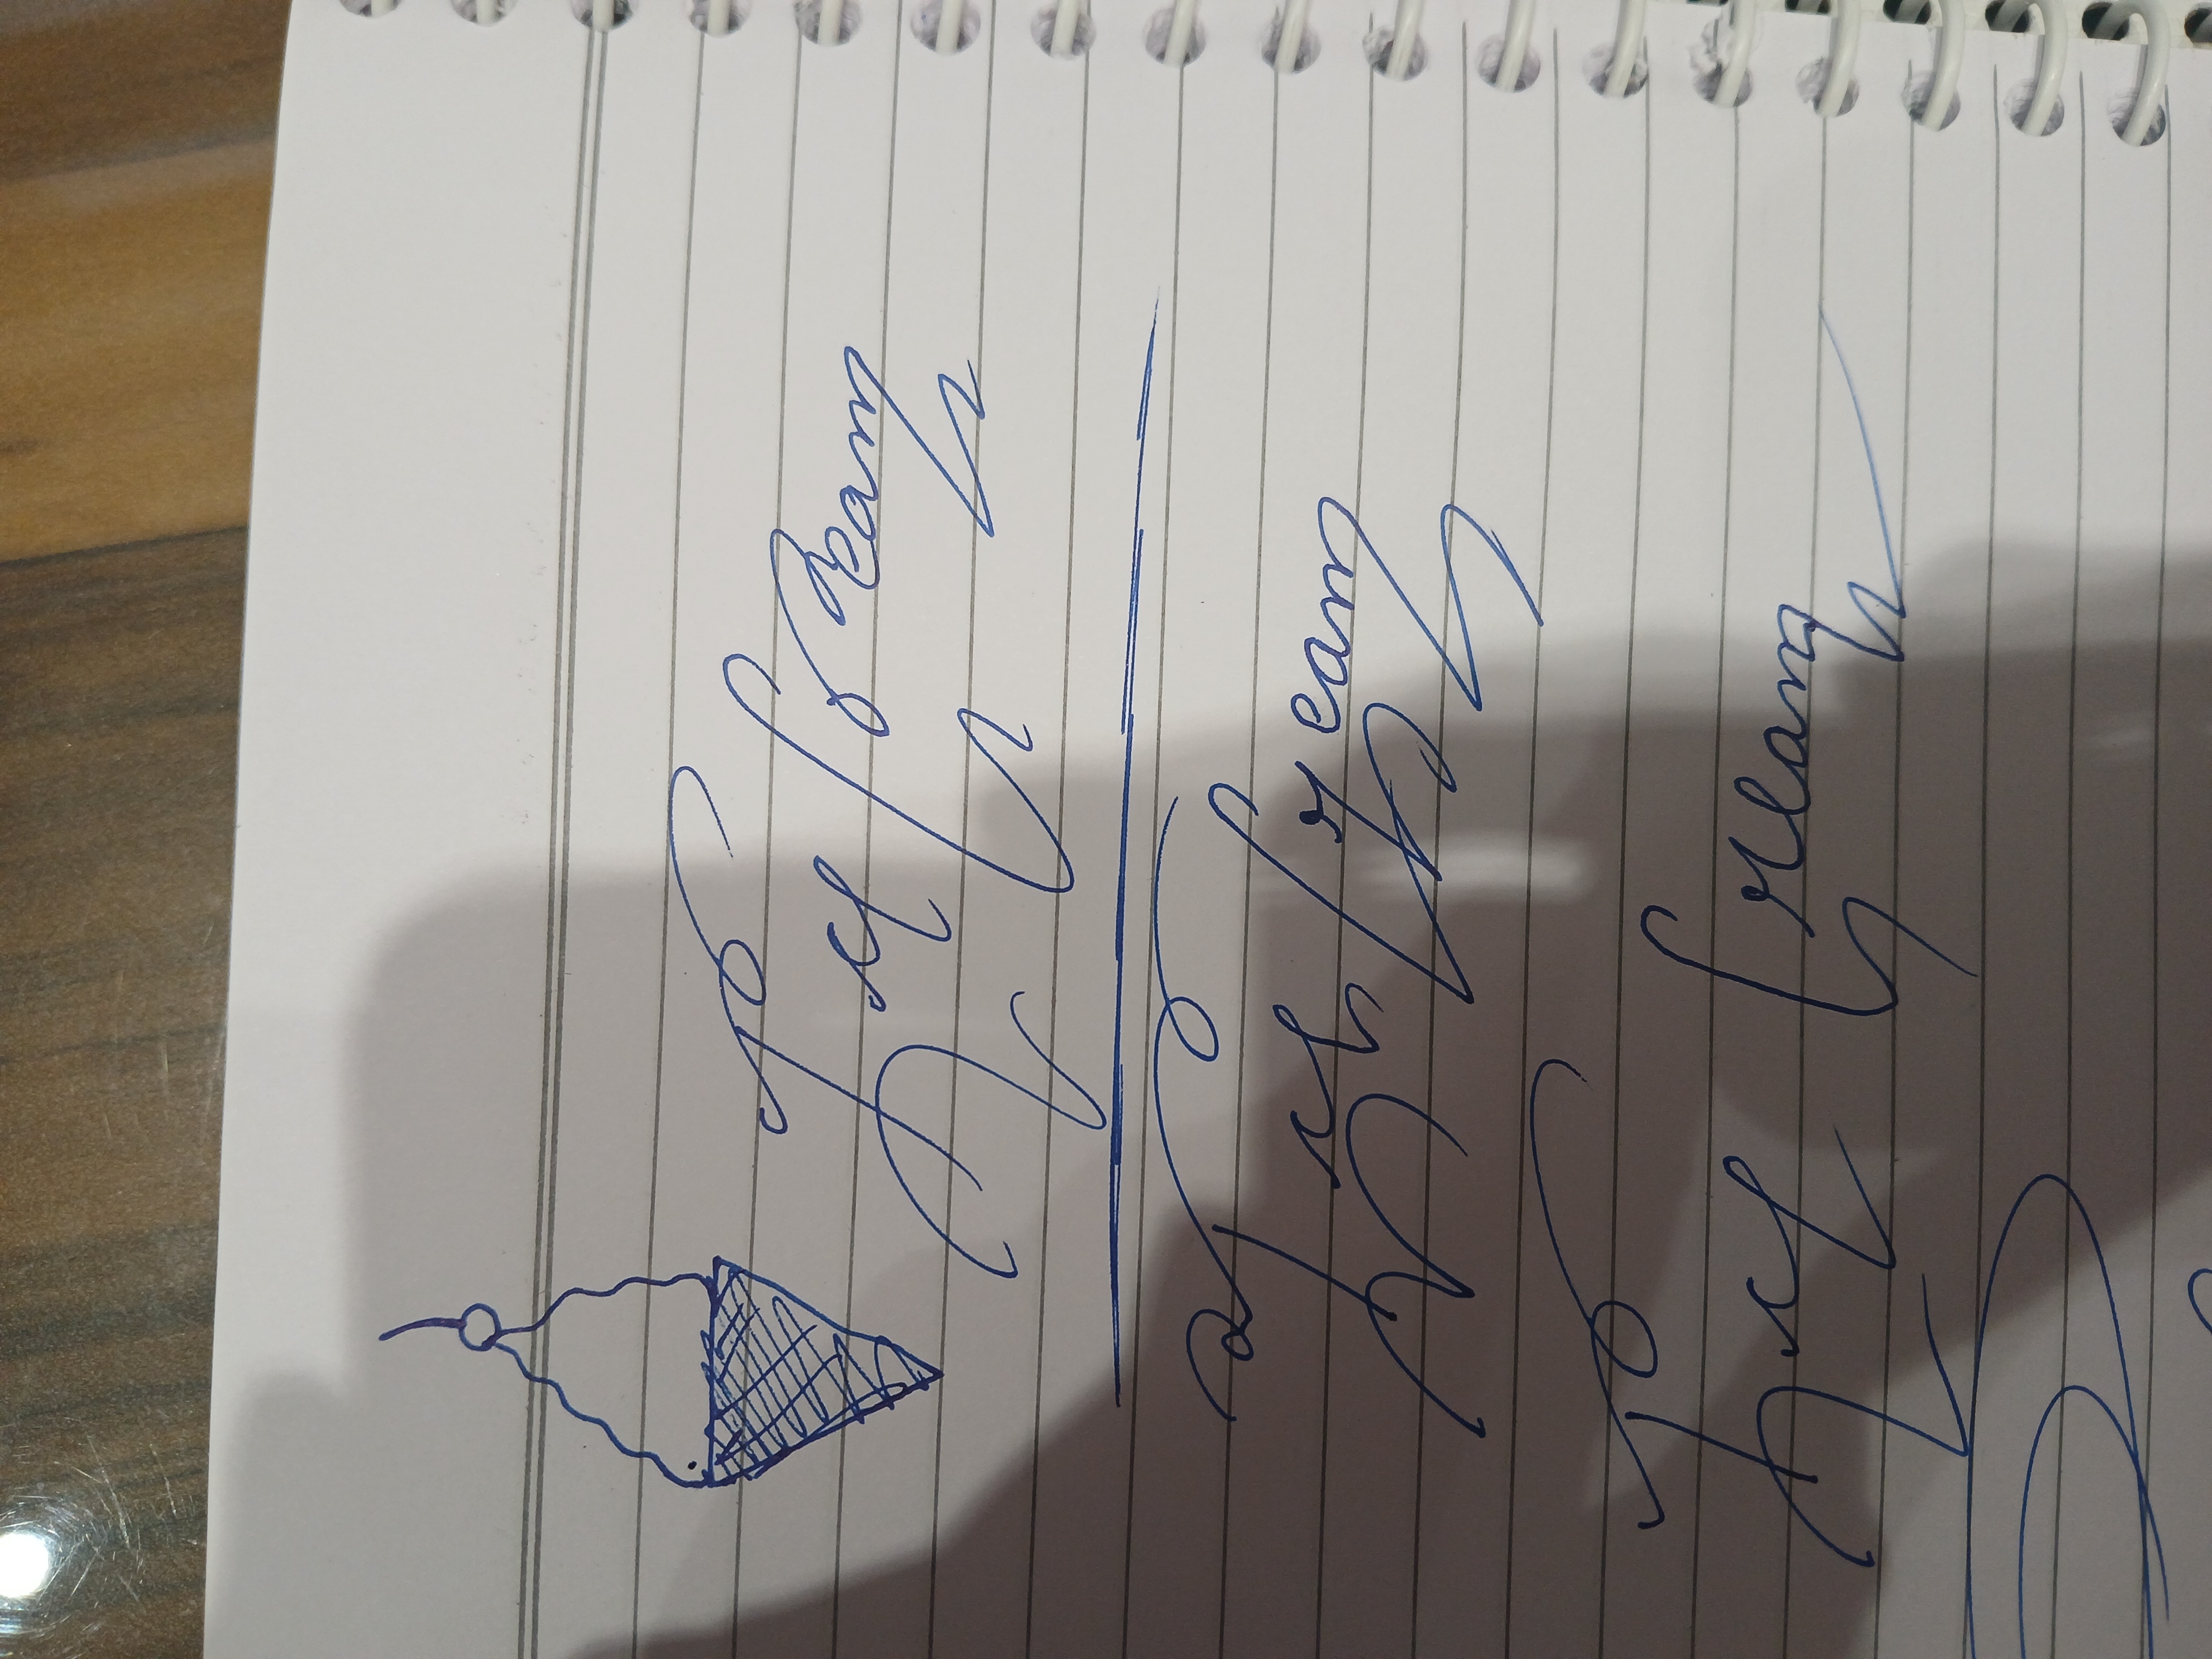 Ice Cream
Ice Cream
Ice Cream